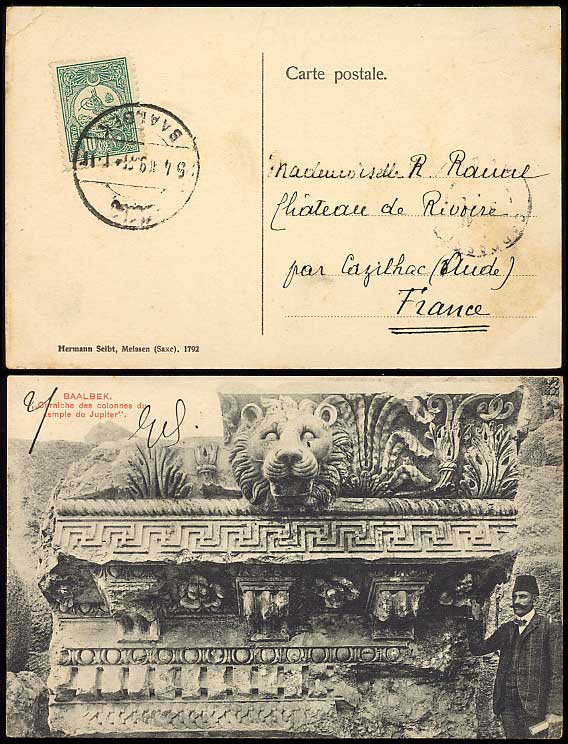 Carte postale.
BAALBEK
Mademoiselle R.
Château de Rivoire
par Cazilhac (Aude)
France
Hermann Seibt, Meissen (Saxe). 1792
BAALBEK.
"Corniche des colonnes du
temple de Jupiter".